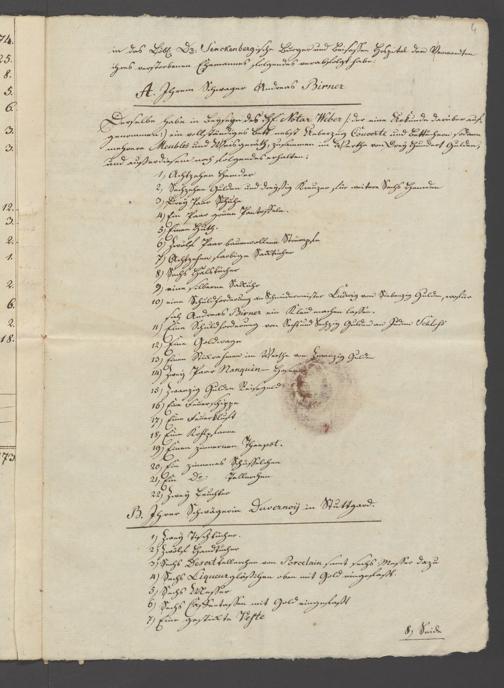 in das Löbl. Dr. Senckenbergische Bürger und Beisassen Hospital den Verwandten
ihres verstorbenen Ehemannes folgendes verabfolgt habe.
A. Ihrem Schwager Andreas Birner
Derselbe habe in Beyseyn des H. Notar Weber (der eine Urkunde darüber auf-
genommen) ein vollständiges Bett nebst Ueberzug Couverte und Betttüchern sodann
mehrere Meubles und Weisgeräth, zusammen im Werthe von Drey Hundert Gulden,
und ausserdem noch folgendes erhalten:
1) Achtzehen Hemder
2) Sechzehen Gulden und dreyßig Kreuzer für weitere Sechs Hemden
3) Drey Paar Schuhe
4) Ein Paar grüne Pantoffeln.
5) Einen Huth.
6) Zwölf Paar baumwollene Strümpfe
7) Achtzehen farbige Sacktücher
8) Sechs Halstücher
9) eine silberne Sackuhr
10) eine Schuldforderung an Schneidermeister Ludwig von Siebenzig Gulden, wofür
sich Andreas Birner ein Kleid machen lassen.
11) Eine Schuldforderung von Sechs und Sechzig Gulden an Juden Schloß
12) Eine Goldwage
13) Einen im Werthe von Zwanzig Gulden
14) Zwey Paar Nanquin Hosen
15) Zwanzig Gulden Reisegeld
16) Eine Feuerschippe
17) Eine Feuerkluft
18) Eine Kohlpfanne
19) Einen zinnernen Theepot.
20) Ein zinnenes Schüsselchen
21) Ein Do. Tellerchen
22) Zwey Leuchter
B. Ihrer Schwägerin Duvernoÿ in Stuttgard.
1) Zwey Tischtücher.
2) Zwölf Handtücher
3) Sechs Desertellerchen von Porcelain samt sechs Messer dazu
4) Sechs Liqueurgläschen oben mit Gold eingefaßt.
5) Sechs Messer
6) Sechs Caffeetassen mit Gold eingefaßt
7) Eine gestickte Weste
8) Seide